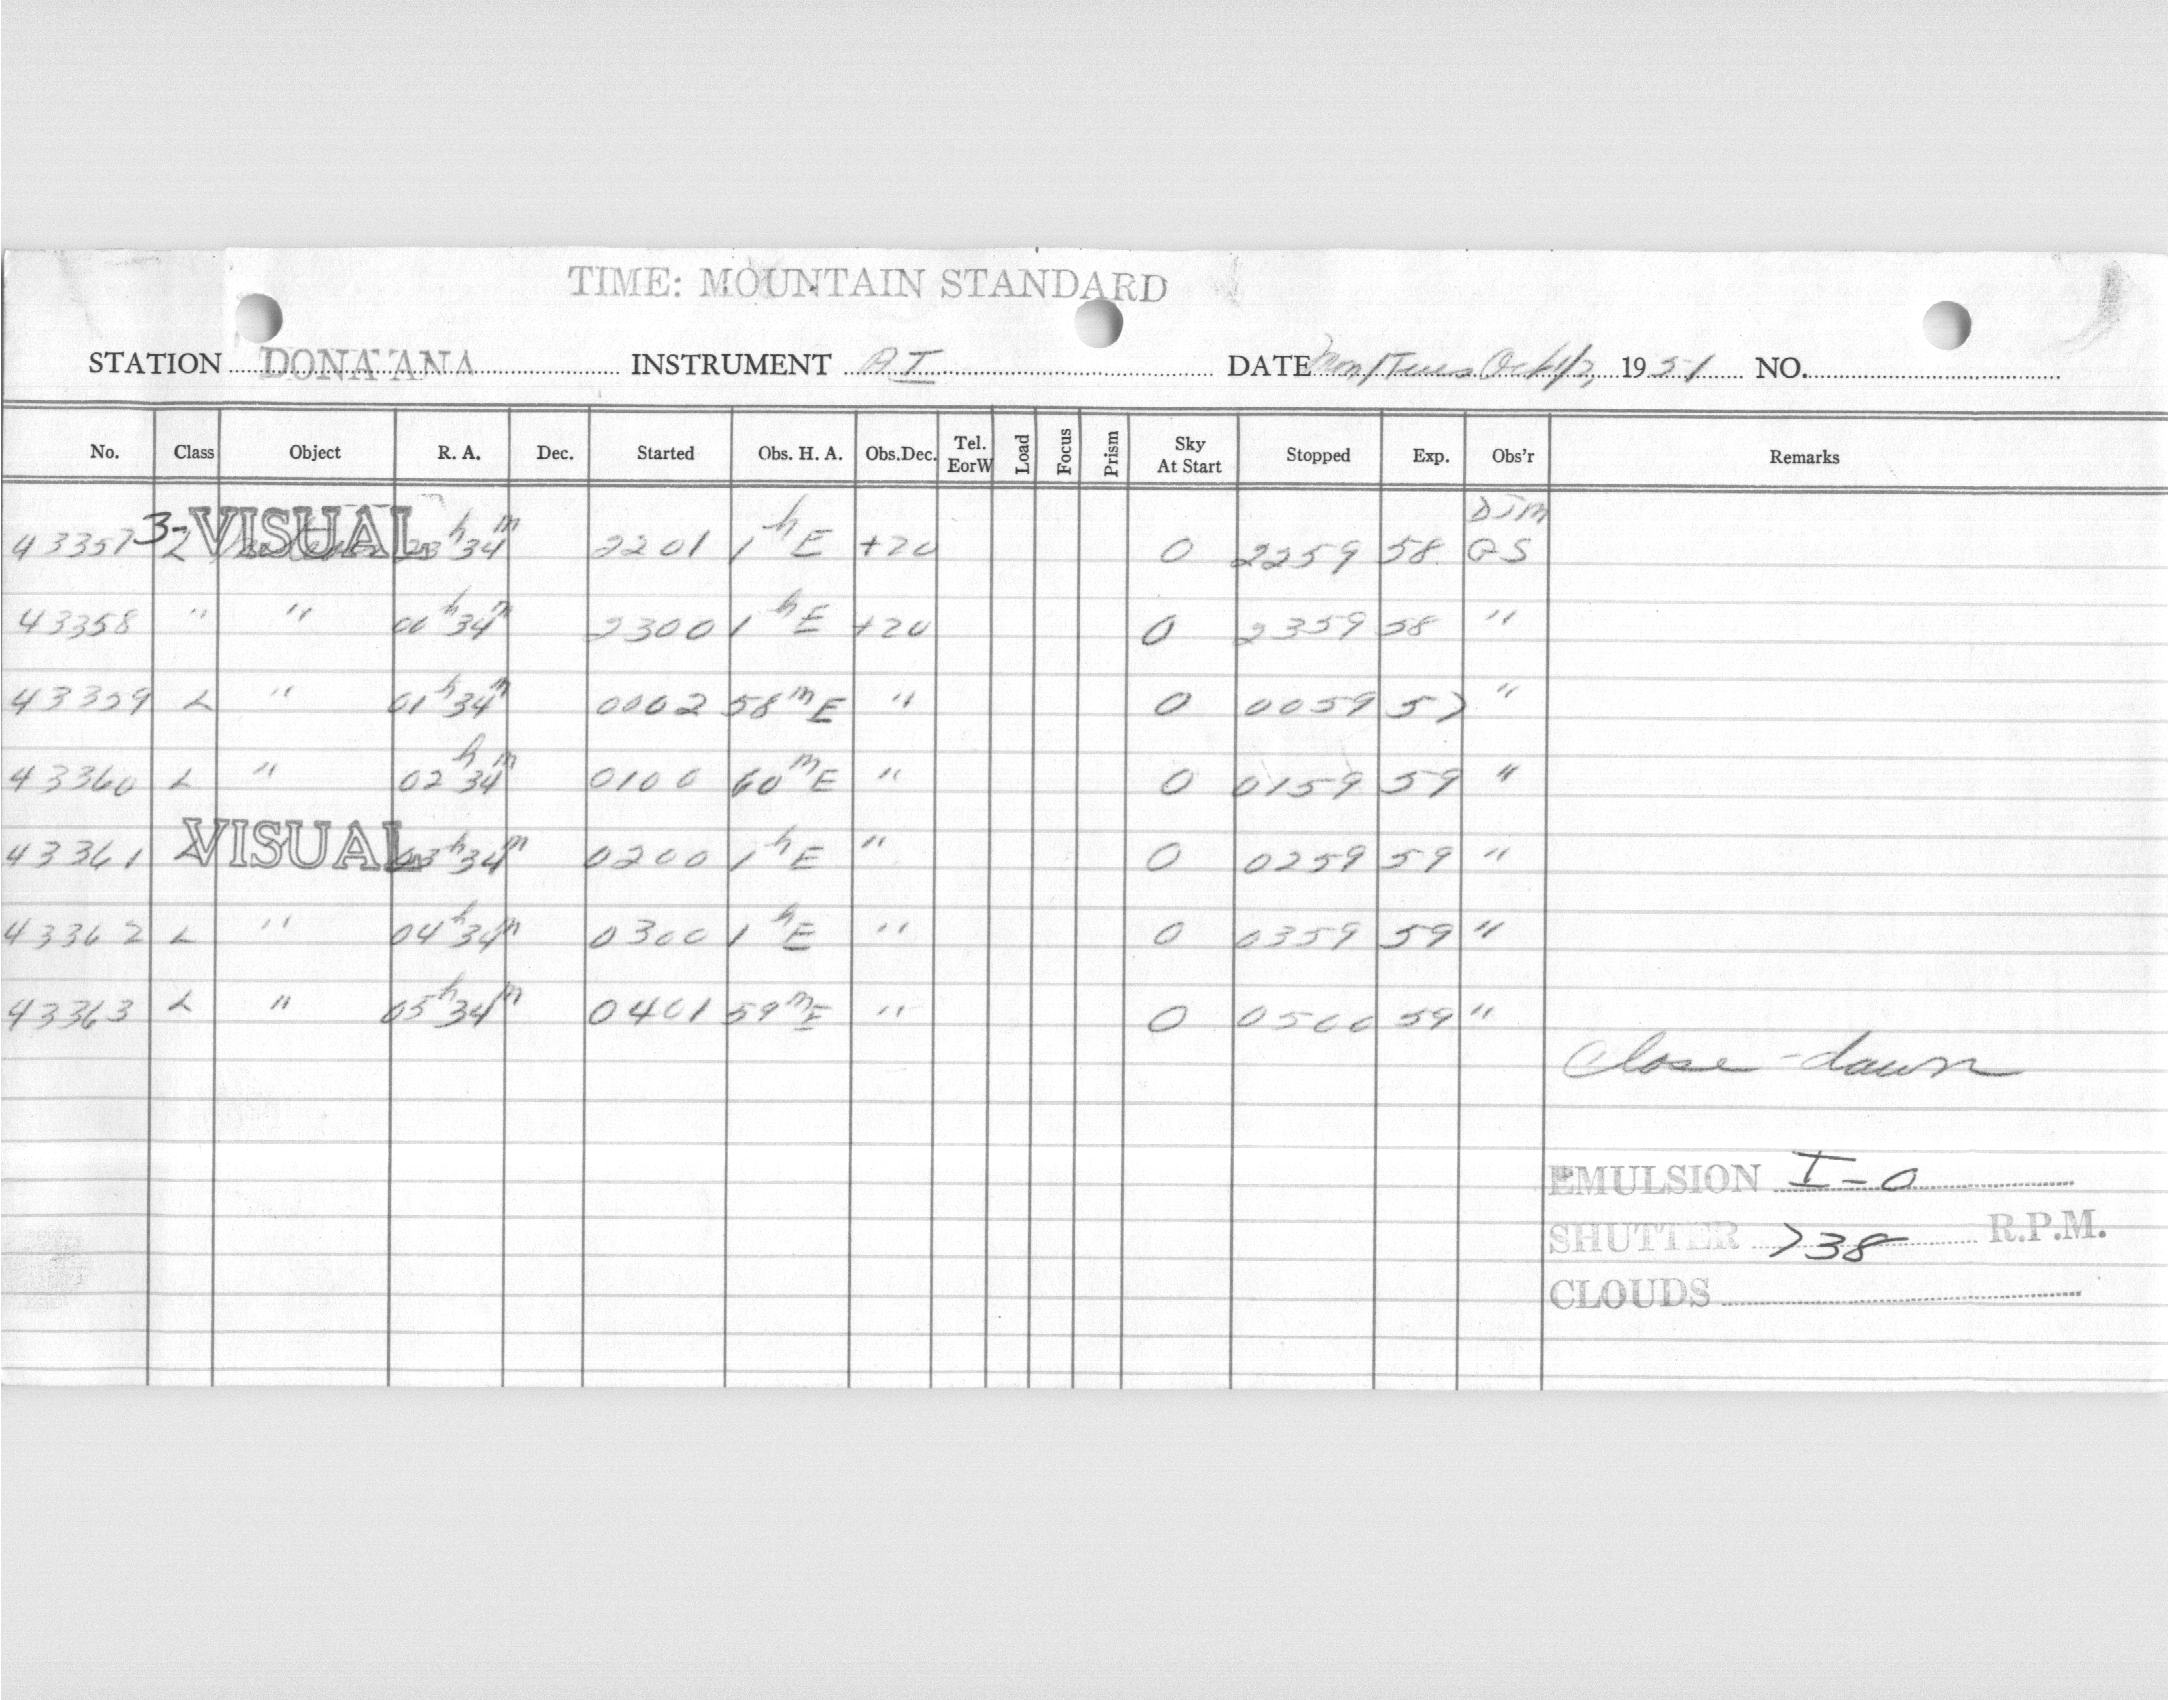 TIME: MOUNTAIN STANDARD
STATION DONA ANA INSTRUMENT AI DATE Mon/Tues Oct 1/2, 1951 NO.
No. Class Object R. A. Dec. Started Obs. H. A. Obs.Dec. Tel. EorW Load Focus Prism Sky At Start Stopped Exp. Obs'r Remarks
43357 L 3-VISUAL 23h34m 2201 1hE +20 0 2259 58 DJM GS
43358 " " 00h34m 2300 1hE +20 0 2359 58 "
43359 L " 01h34m 0002 58mE " 0 0059 57 "
43360 L " 02h34m 0100 60mE " 0 0159 59 "
43361 L VISUAL 03h34m 0200 1hE " 0 0259 59 "
43362 L " 04h34m 0300 1hE " 0 0359 59 "
43363 L " 05h34m 0401 59mE " 0 0500 59 "
Close-dawn
EMULSION I-0
SHUTTER >38 R.P.M.
CLOUDS